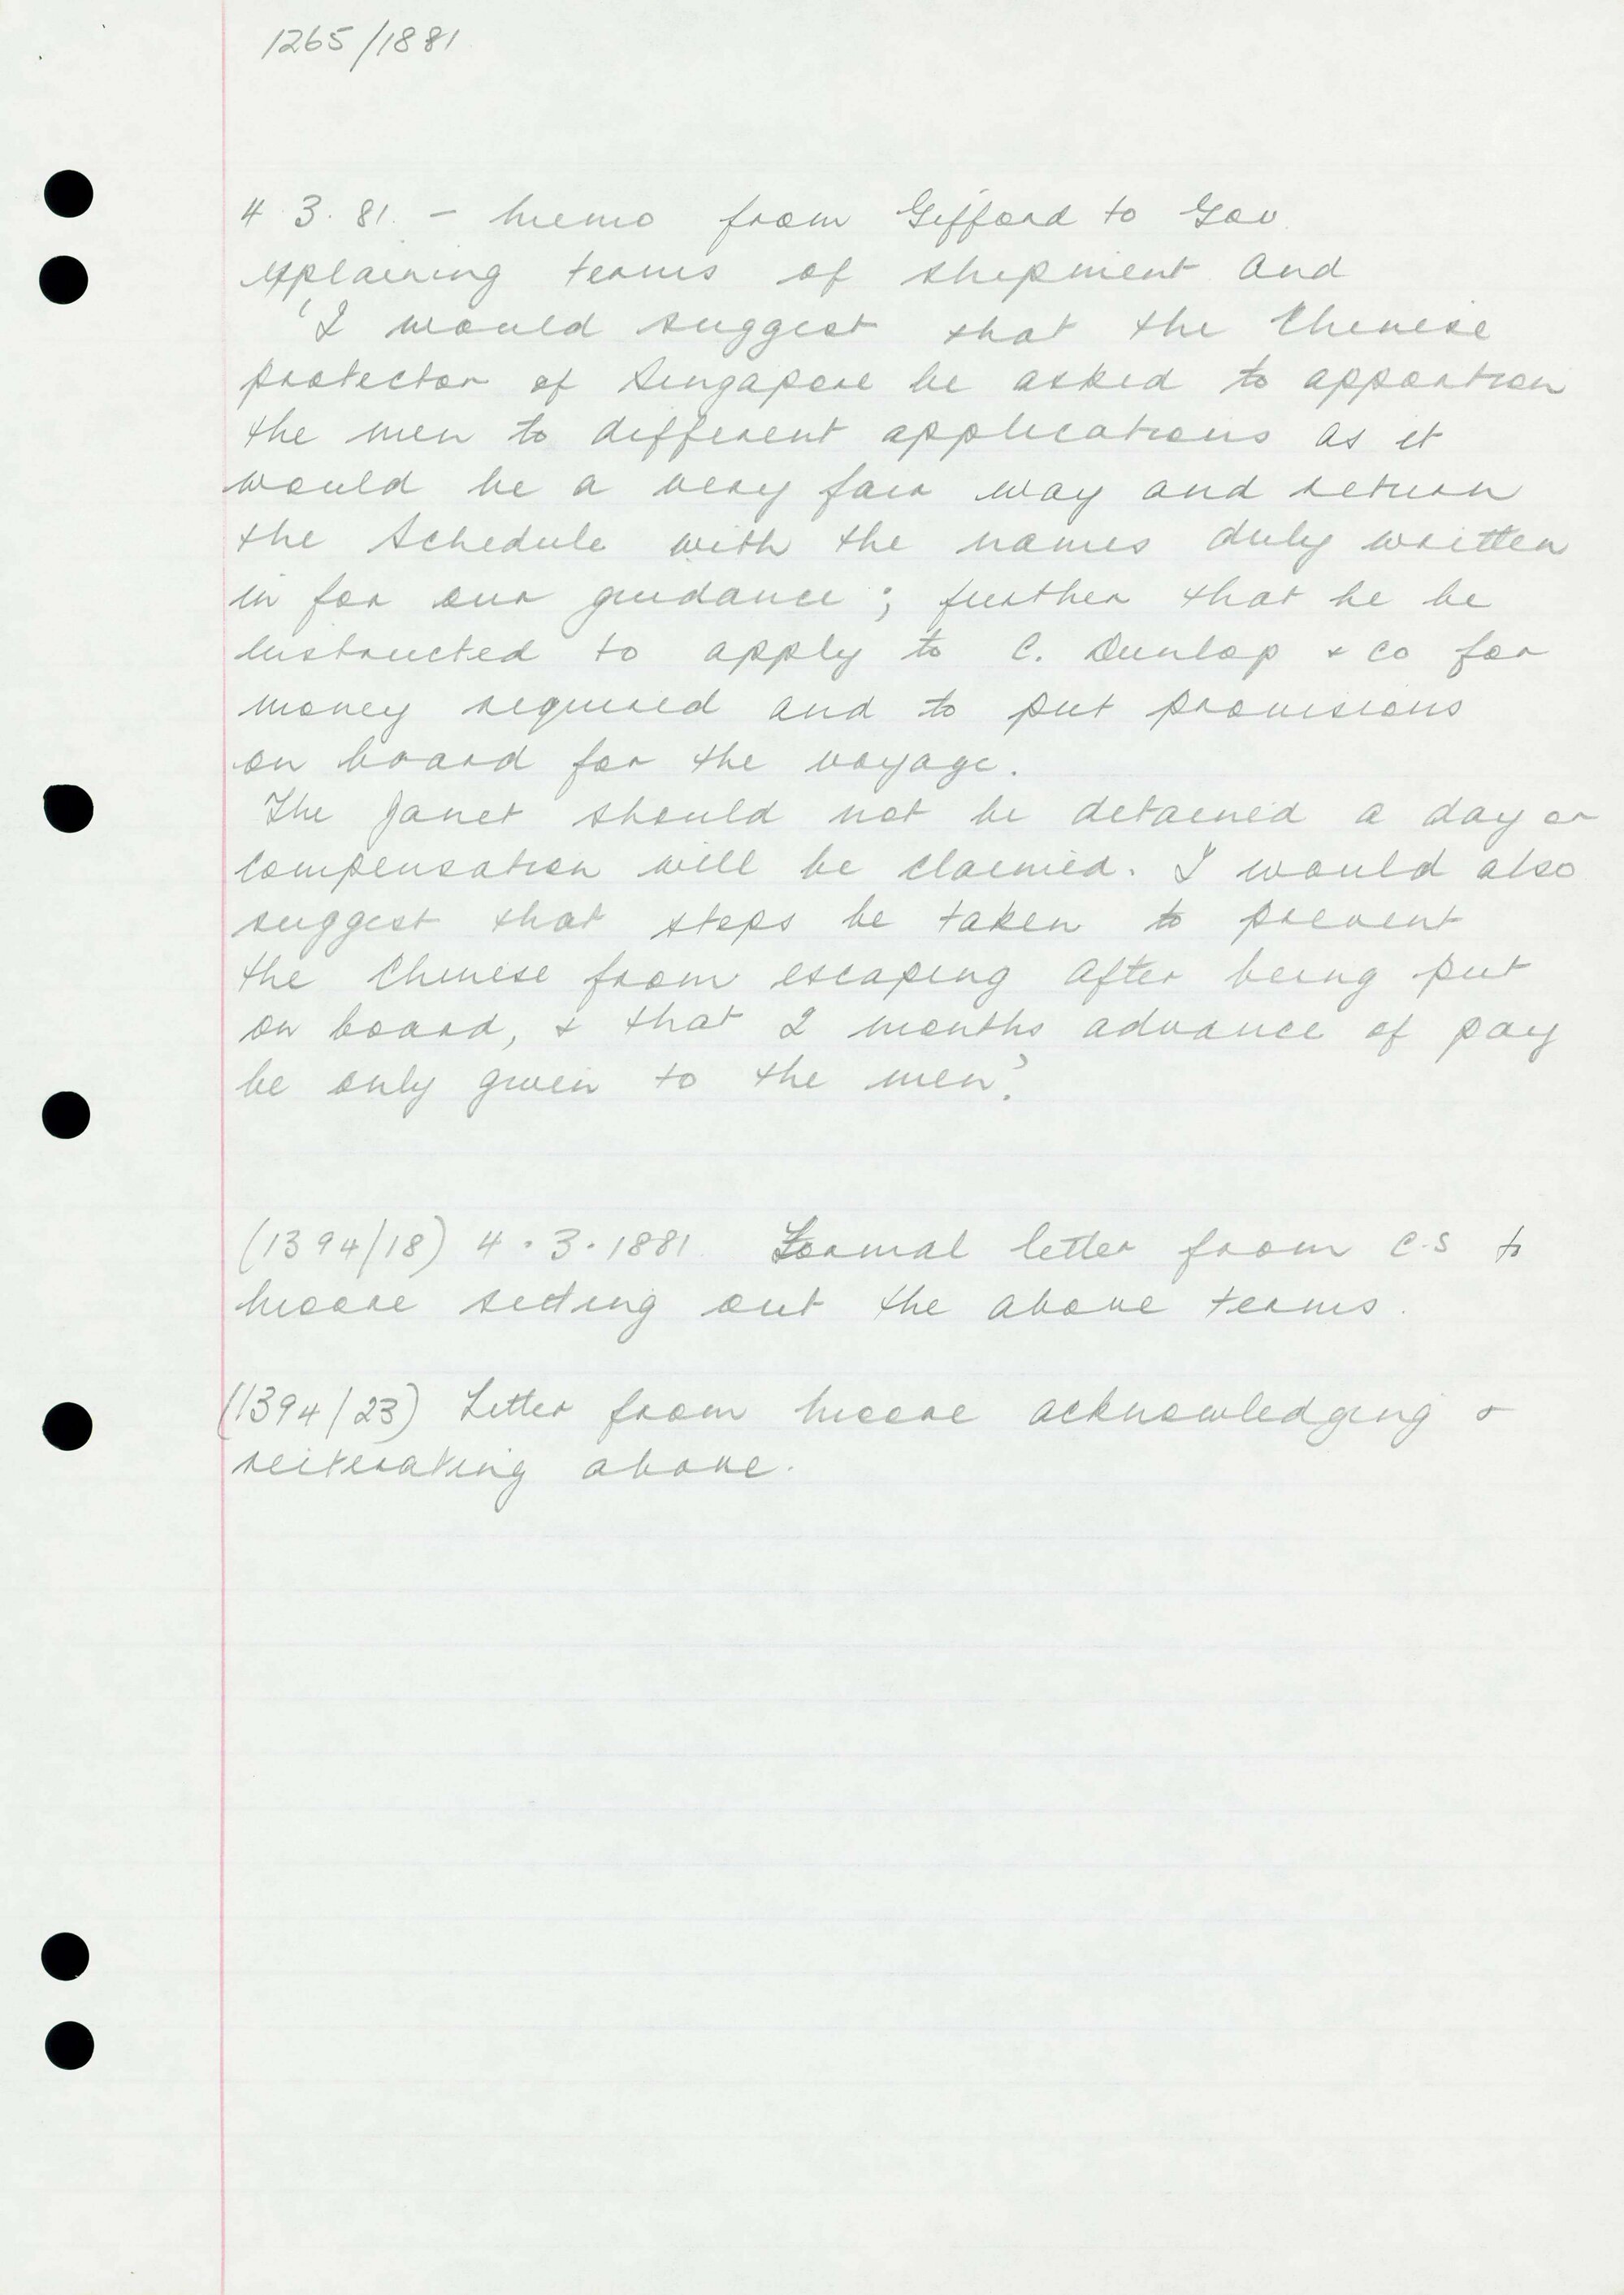 1265/1881
4.3.81. - Memo from Gifford to Gov
explaining terms of shipment and
'I would suggest that the Chinese
protector of Singapore be asked to apportion
the men to different applications as it
would be a very fair way and return
the schedule with the names duly written
in for our guidance; further that he be
instructed to apply to C. Dunlop & Co for
money required and to put provisions
on board for the voyage.
The Janet should not be detained a day or
compensation will be claimed. I would also
suggest that steps be taken to prevent
the Chinese from escaping after being put
on board, & that 2 months advance of pay
be only given to the men'.
(1394/18) 4.3.1881. Formal letter from C.S to
Moore setting out the above terms.
(1394/23) Letter from Moore acknowledging &
reiterating above.